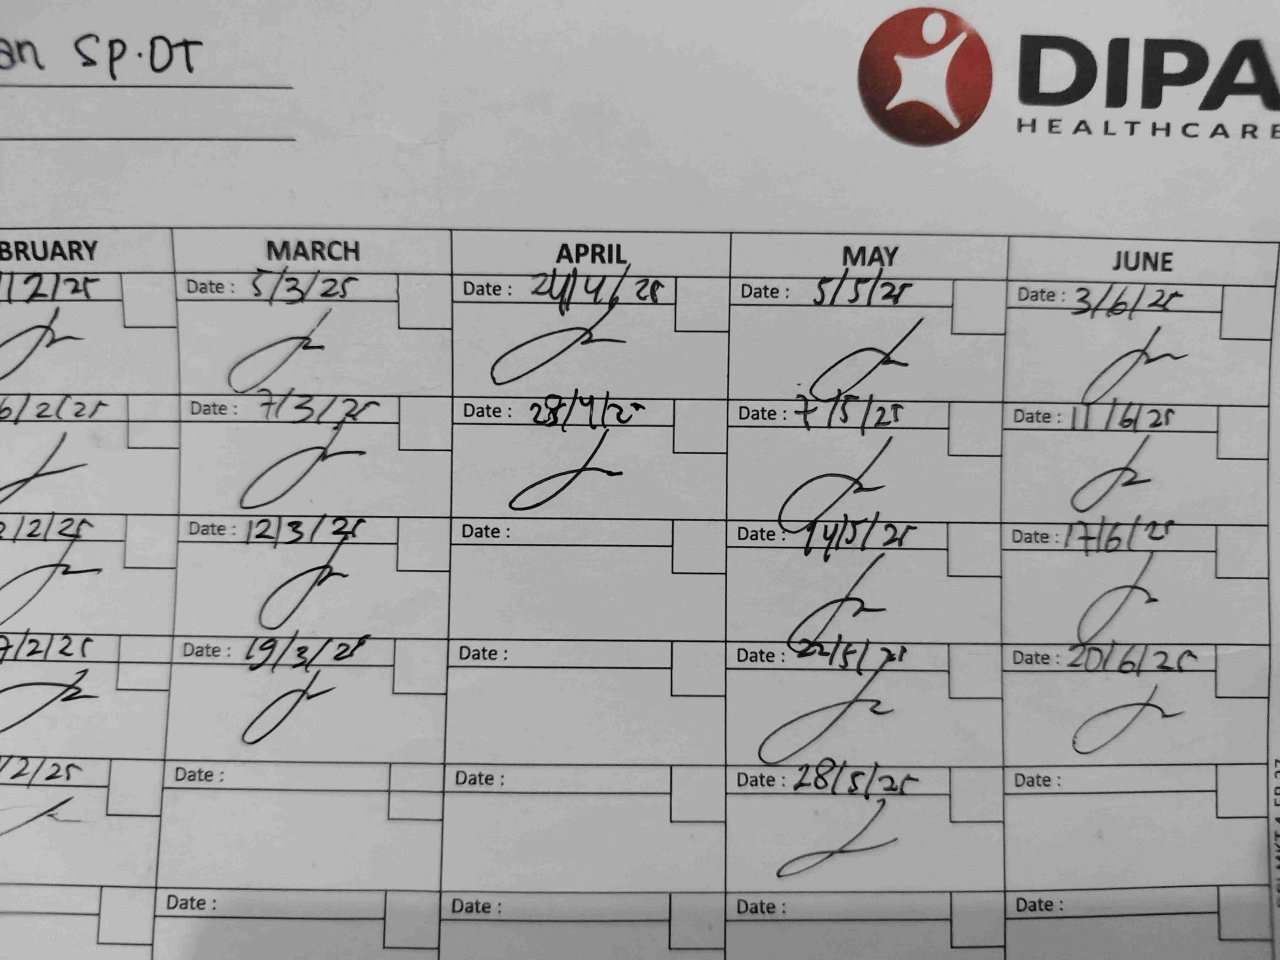 an SP.OT
DIPA
HEALTHCARE
BRUARY MARCH APRIL MAY JUNE
/2/25 Date : 5/3/25 Date : 24/4/25 Date : 5/5/25 Date : 3/6/25
6/2/25 Date : 7/3/25 Date : 28/4/25 Date : 7/5/25 Date : 11/6/25
/2/25 Date : 12/3/25 Date : Date : 14/5/25 Date : 17/6/25
7/2/25 Date : 19/3/25 Date : Date : 22/5/25 Date : 20/6/25
/2/25 Date : Date : Date : 28/5/25 Date :
Date : Date : Date : Date :